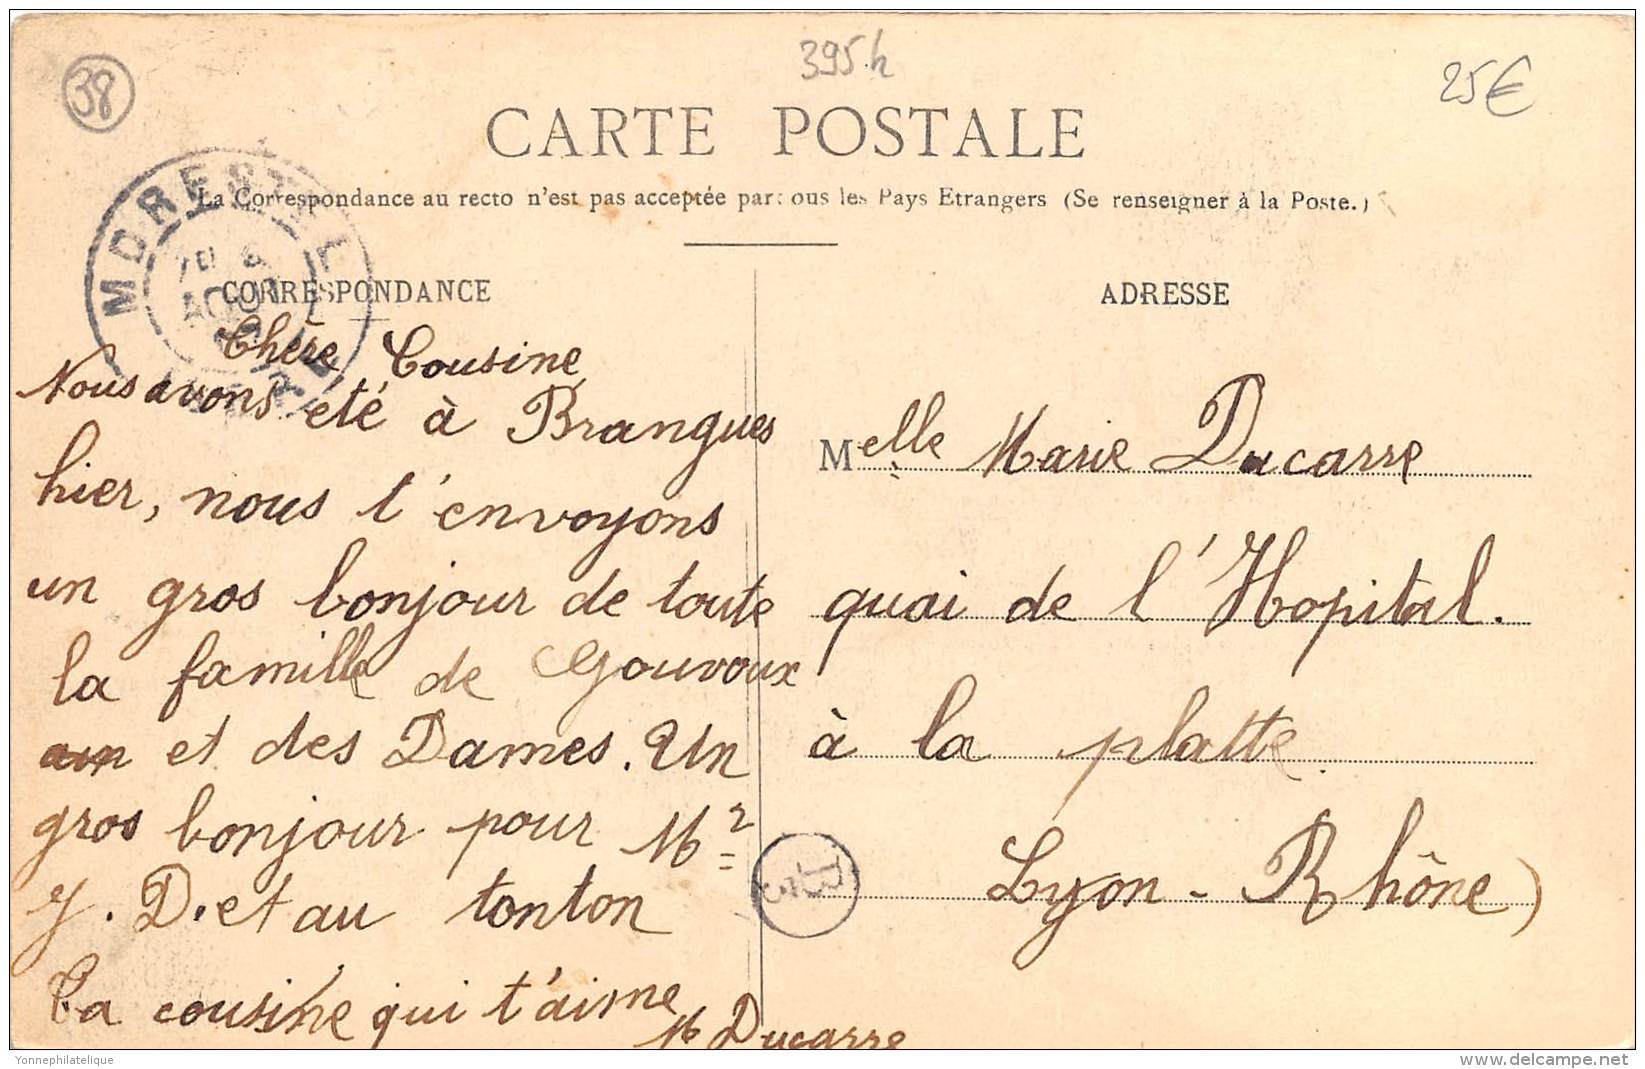 38
395h
25€
CARTE POSTALE
La Correspondance au recto n'est pas acceptée par tous les Pays Etrangers (Se renseigner à la Poste.)
MORESTEL
AOUT
CORRESPONDANCE
Chère Cousine
Nous avons été à Brangues
hier, nous t'envoyons
un gros bonjour de toute
la famille de Gouvoux
et des Dames. Un
gros bonjour pour Mr
J. D. et au tonton
Ta cousine qui t'aime
M Ducarre
ADRESSE
Melle Marie Ducarre
quai de l'Hopital.
à la platte.
Lyon - Rhône)
Yonnephilatelique
www.delcampe.net